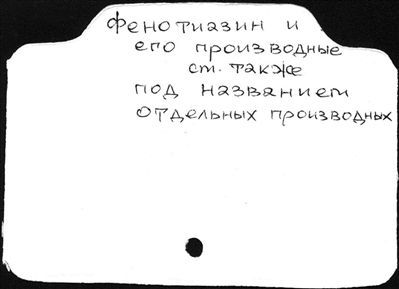 Фенотиазин и
его производные
см. также
под названием
отдельных производных